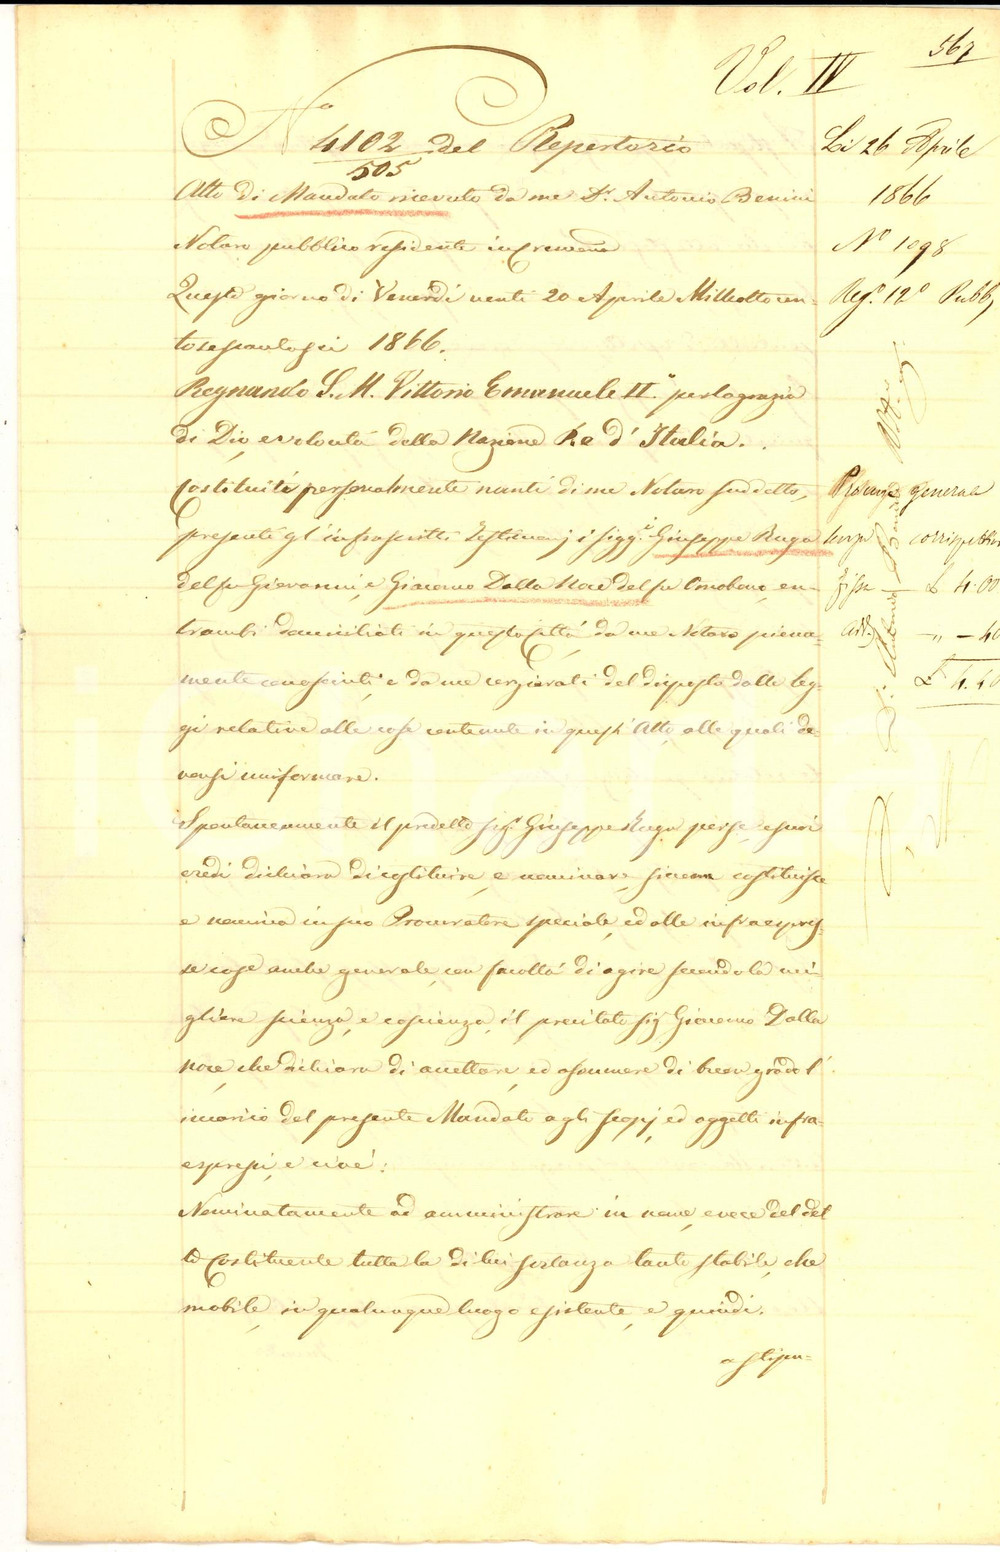 567
Vol. IV
N° 4102 del Repertorio
505
Atto di Mandato ricevuto da me Dr. Antonio Benini
Notaro pubblico residente in Cremona
Questo giorno di Venerdì venti 20 Aprile Milleottocen-
tosessantasei 1866.
Regnando S. M. Vittorio Emanuele II° per la grazia
di Dio, e volontà della Nazione Re d'Italia.
Costituiti personalmente nanti di me Notaro suddetto,
presenti gl'infrascritti Testimonj i sigg.i Giuseppe Ruga
del fu Giovanni, e Giacomo Dalla Noce del fu Omobono, en-
trambi domiciliati in questa Città, da me Notaro piena-
mente conosciuti, e da me cerziorati del disposto dalle leg-
gi relative alle cose contenute in quest'Atto, alle quali de-
vonsi uniformare.
Spontaneamente il predetto sig.r Giuseppe Ruga per se, e suoi
eredi dichiara di costituire, e nominare, siccome costituisce
e nomina in suo Procuratore speciale, ed alle infraespres-
se cose anche generale, con facoltà di agire secondo la mi-
gliore scienza, e coscienza, il precitato sig.r Giacomo Dalla
Noce, che dichiara di accettare, ed assumere di buon grado l'
incarico del presente Mandato agli scopj, ed oggetti infra-
espressi, e cioè:
Nominatamente ad amministrare in nome, e vece del det
to Costituente tutta la di lui sostanza tanto stabile, che
mobile, in qualunque luogo esistente, e quindi.
a stipu=
Li 26 Aprile
1866
N° 1098
Reg.° 12° Pubb.
generale
corrispettivo
fissa £ 4.00
add. " - 40
£ 4.40